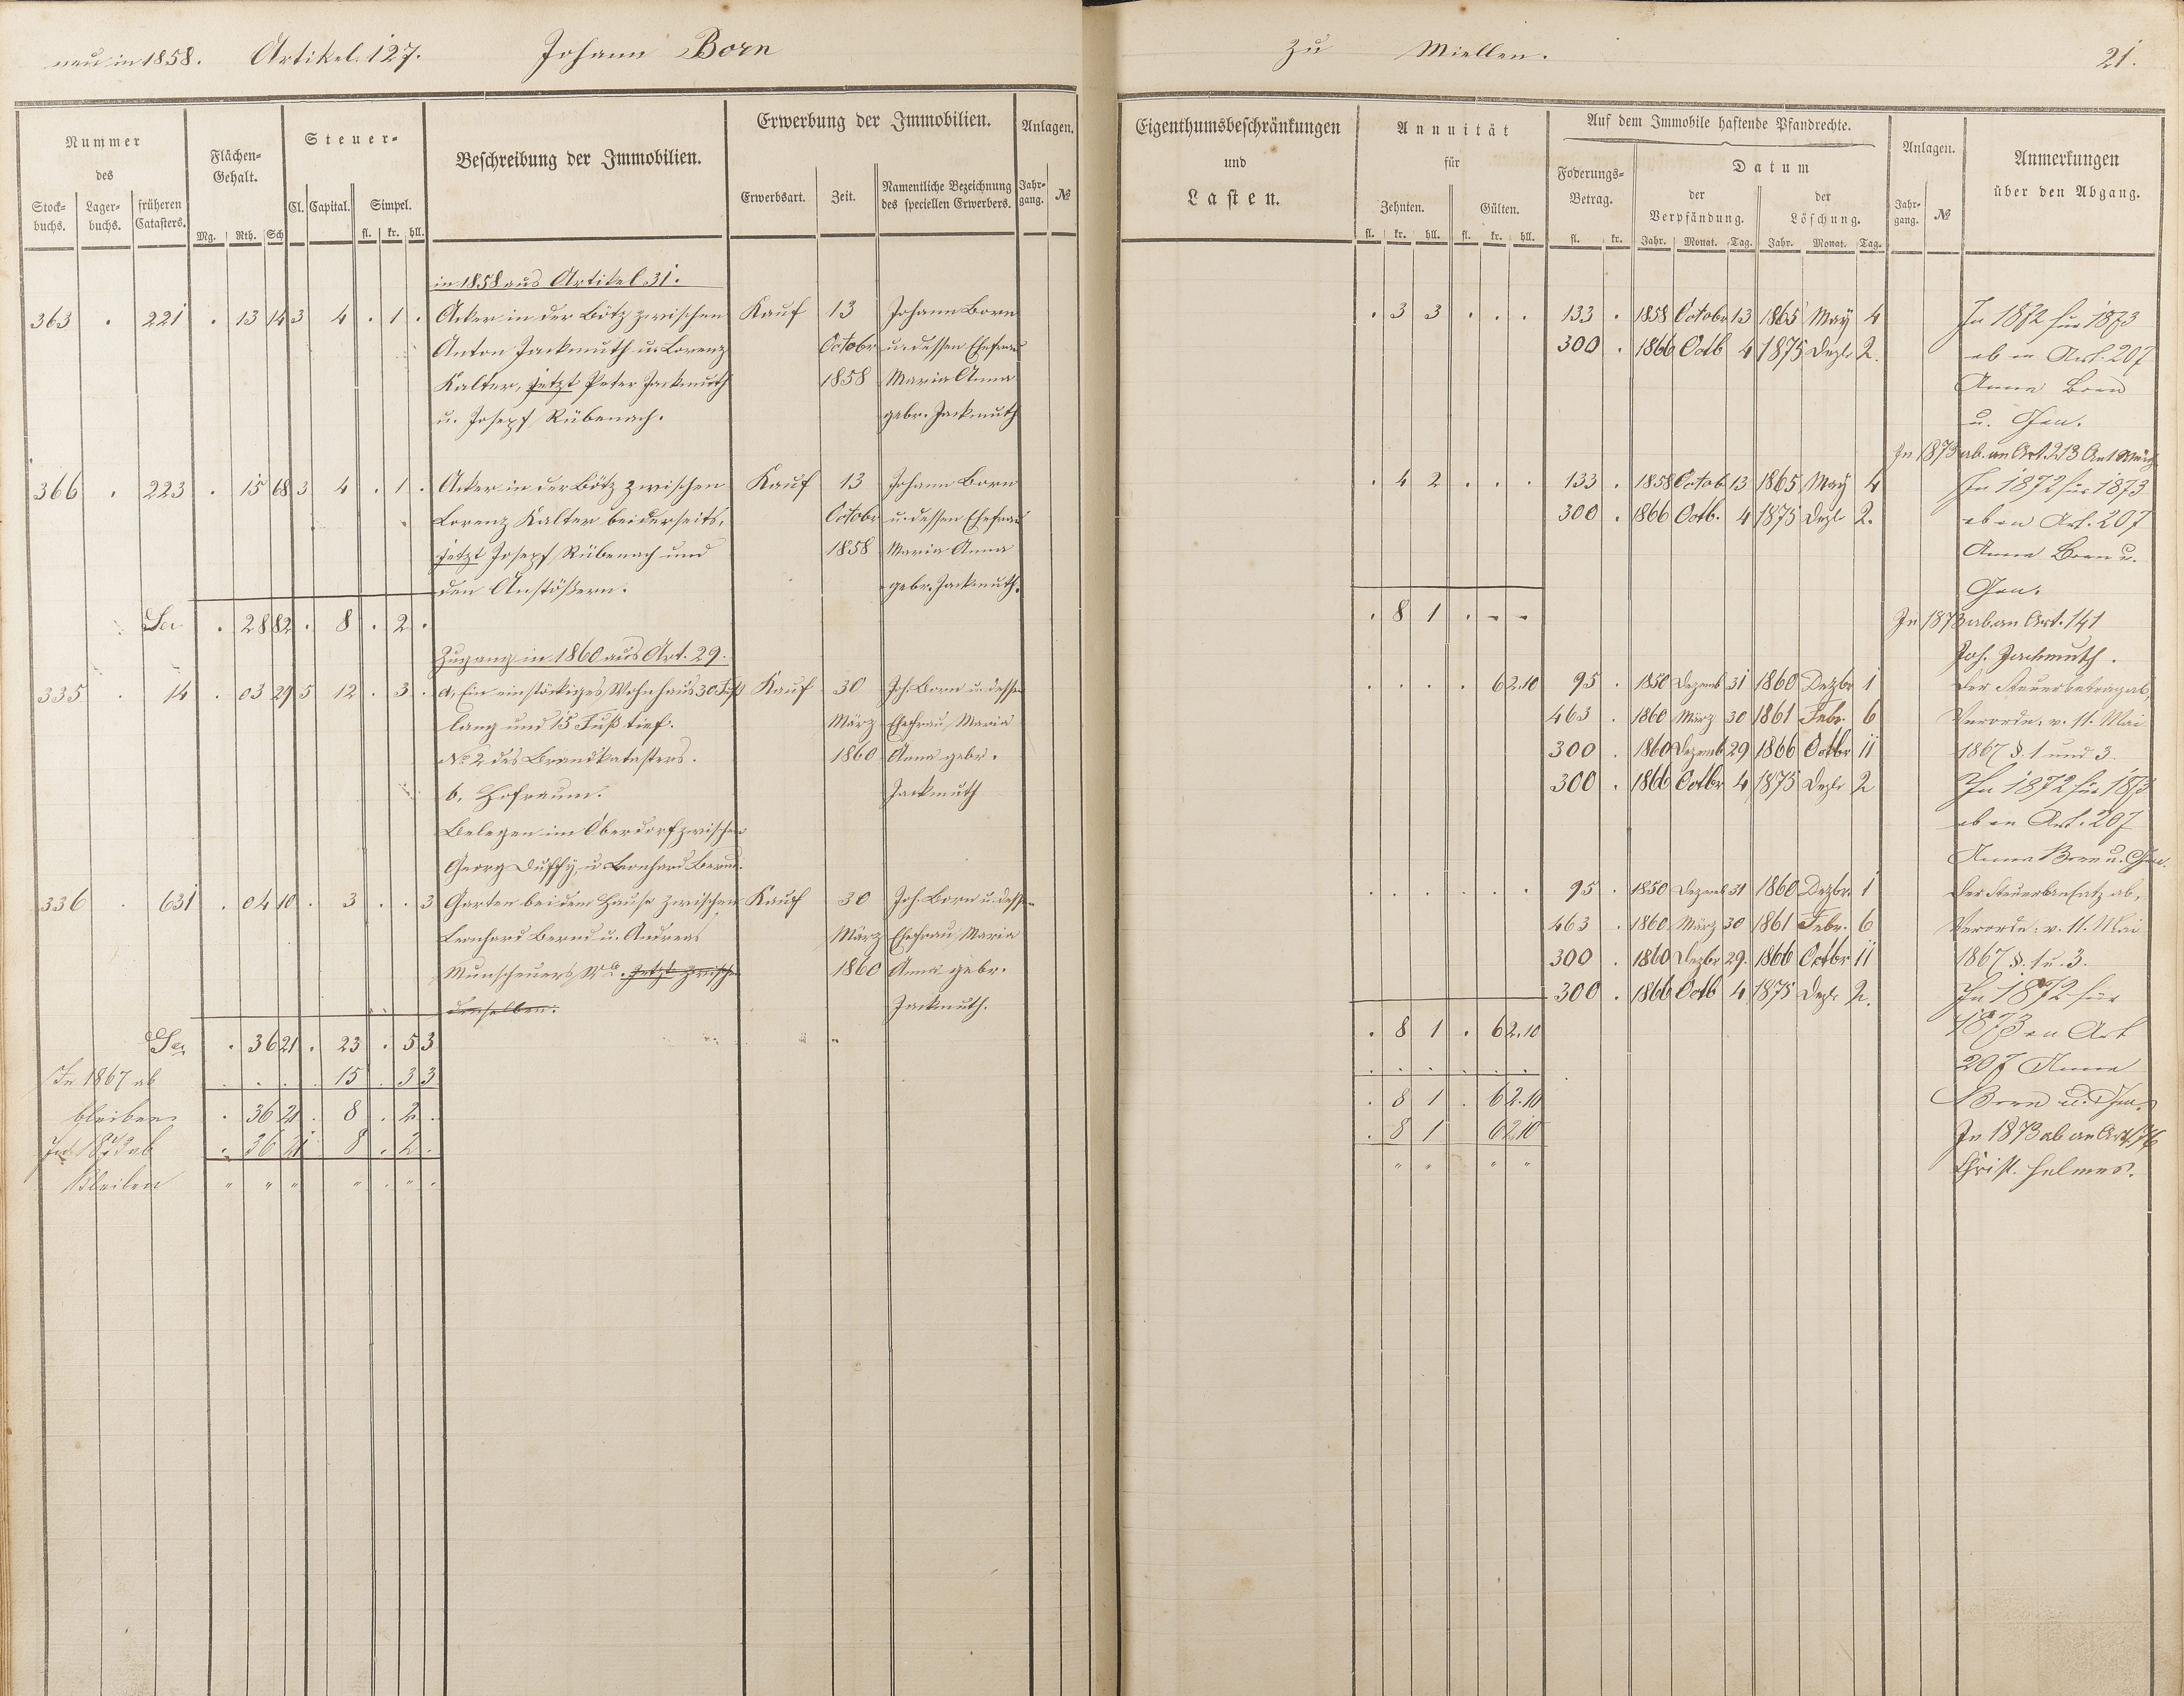 neu in 1858. Artikel. 127. Johann Born
zu Miellen. 21.
Nummer
des
Stock-
buchs.
Lager-
buchs.
früheren
Catasters.
Flächen-
Gehalt.
Mg. Rth. Sch
Steuer-
Cl. Capital. Simpel.
fl. kr. hll.
Beschreibung der Immobilien.
Erwerbung der Immobilien.
Erwerbsart. Zeit. Namentliche Bezeichnung
des speciellen Erwerbers.
Anlagen.
Jahr-
gang. №
Eigenthumsbeschränkungen
und
Lasten.
Annuität
für
Zehnten. Gülten.
fl. kr. hll. fl. kr. hll.
Auf dem Immobile haftende Pfandrechte.
Foderungs-
Betrag.
fl. kr.
Datum
der
Verpfändung.
der
Löschung.
Jahr. Monat. Tag. Jahr. Monat. Tag.
Anlagen.
Jahr-
gang. №
Anmerkungen
über den Abgang.
in 1858 aus Artikel 31.
363 . 221 . 13 14 3 4 . 1 . Acker in der Bötz zwischen Kauf 13 Johann Born
Anton Jackmuth u. Lorenz Octobr u. dessen Ehefrau
Kalter, jetzt Peter Jackmuth 1858 Maria Anna
u. Josepf Rübenach. gebr. Jackmuth
366 . 223 . 15 68 3 4 . 1 . Acker in der Bötz zwischen Kauf 13 Johann Born
Lorenz Kalter beiderseits, Octobr u. dessen Ehefrau
jetzt Josepf Rübenach und 1858 Maria Anna
den Anstößern. gebr. Jackmuth.
Sa . 28 82 . 8 . 2 .
Zugang in 1860 aus Art. 29.
335 . 14 . 03 29 5 12 . 3 . a, Ein einstöckiges Wohnhaus 30 Fuß Kauf 30 Joh. Born u. dessen
lang und 15 Fuß tief. März Ehefrau Maria
№ 2 des Brandkatasters. 1860 Anna gebr.
b, Hofraum. Jackmuth
Belegen im Oberdorf zwischen
Georg Duffy u Leonhard Bernd.
336 . 631 . 04 10 . 3 . . 3 Garten bei dem Hause zwischen Kauf 30 Joh. Born u. dessen
Leonhard Bernd u. Andreas März Ehefrau Maria
Munscheuers jetzt zwischen 1860 Anna gebr.
denselben. Jackmuth.
Sa . 36 21 . 23 . 5 3
In 1867 ab . . . . 15 . 3 3
bleiben . 36 21 . 8 . 2 .
In 1873 ab . 36 21 8 . 2 .
Bleiben " " " " . " .
. 3 3 . . . 133 . 1858 Octobr 13 1865 May 4 In 1872 für 1873
300 . 1866 Octb 4 1875 Dezb 2. ab an Art. 207
Anna Born
u. Gen.
In 1873 ab. an Art. 213
. 4 2 . . . 133 . 1858 Octob 13 1865 May 4 In 1872 für 1873
300 . 1866 Octb. 4 1875 Dezb 2. ab an Art. 207
Anna Born u.
Gen.
. 8 1 . - - In 1873 ab an Art. 141
Jos. Jackmuth.
. . . . 62.10 95 . 1850 Dezemb 31 1860 Dezbr 1 Der Steuerbetrag ab,
463 . 1860 März 30 1861 Febr. 6 Verordn. v. 11. Mai
300 . 1860 Dezemb 29 1866 Octbr 11 1867 §. 1 und 3.
300 . 1866 Octbr 4 1875 Dezb 2 In 1872 für 1873
ab an Art. 207
Anna Born u. Gen.
. . . . . . 95 . 1850 Dezemb 31 1860 Dezbr. 1 Der Steueransatz ab,
463 . 1860 März 30 1861 Febr. 6 Verordn. v. 11. Mai
300 . 1860 Dezbr 29. 1866 Octbr 11 1867 §. 1 u. 3.
300 . 1866 Octb 4 1875 Dezb 2. In 1872 für
. 8 1 . 62.10 1873 an Art
. . . . . . 207 Anna
. 8 1 . 62.10 Born u. Gen.
. 8 1 62.10 In 1873 ab an Art. 76
" " " " Christ. Helmes.